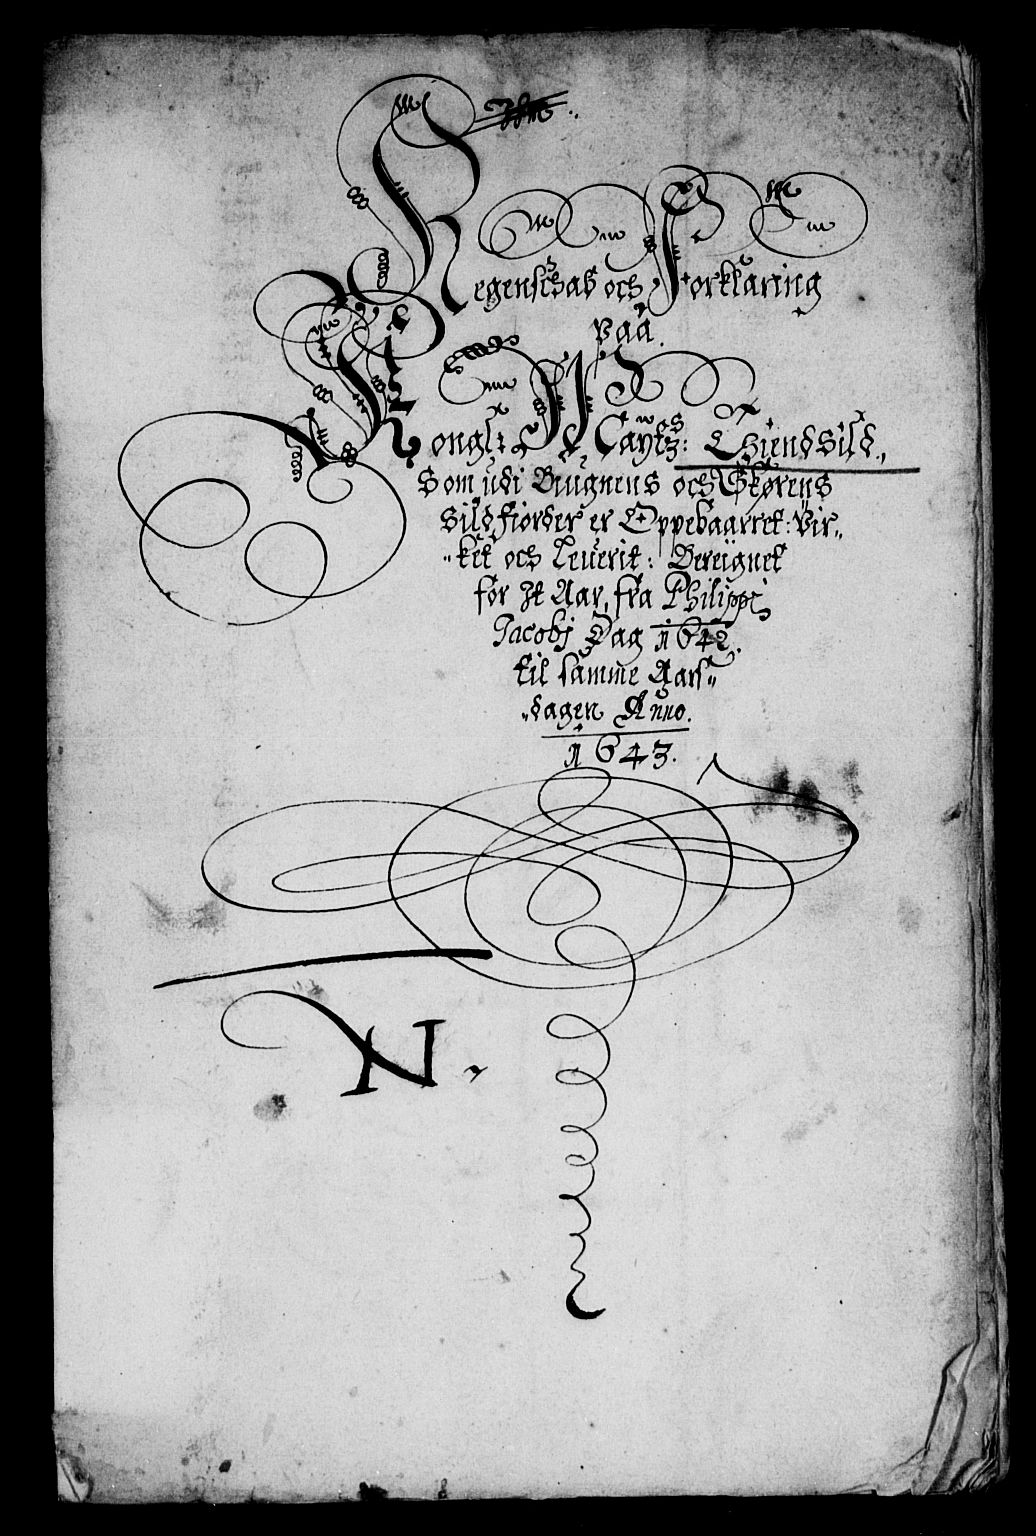 Regenschab och Forklaring
Paa.
Kongl: Maytz: Thiend Sild.,
Som udi Biugnens och Skørens
Sildfiorder er Oppebaarret: Vir„
„ket och Leuerit: Bereignet
for It Aar, fra Philippi
Jacobj Dag 1642.
til samme Aars„
„dagen Anno.
1643.
N.